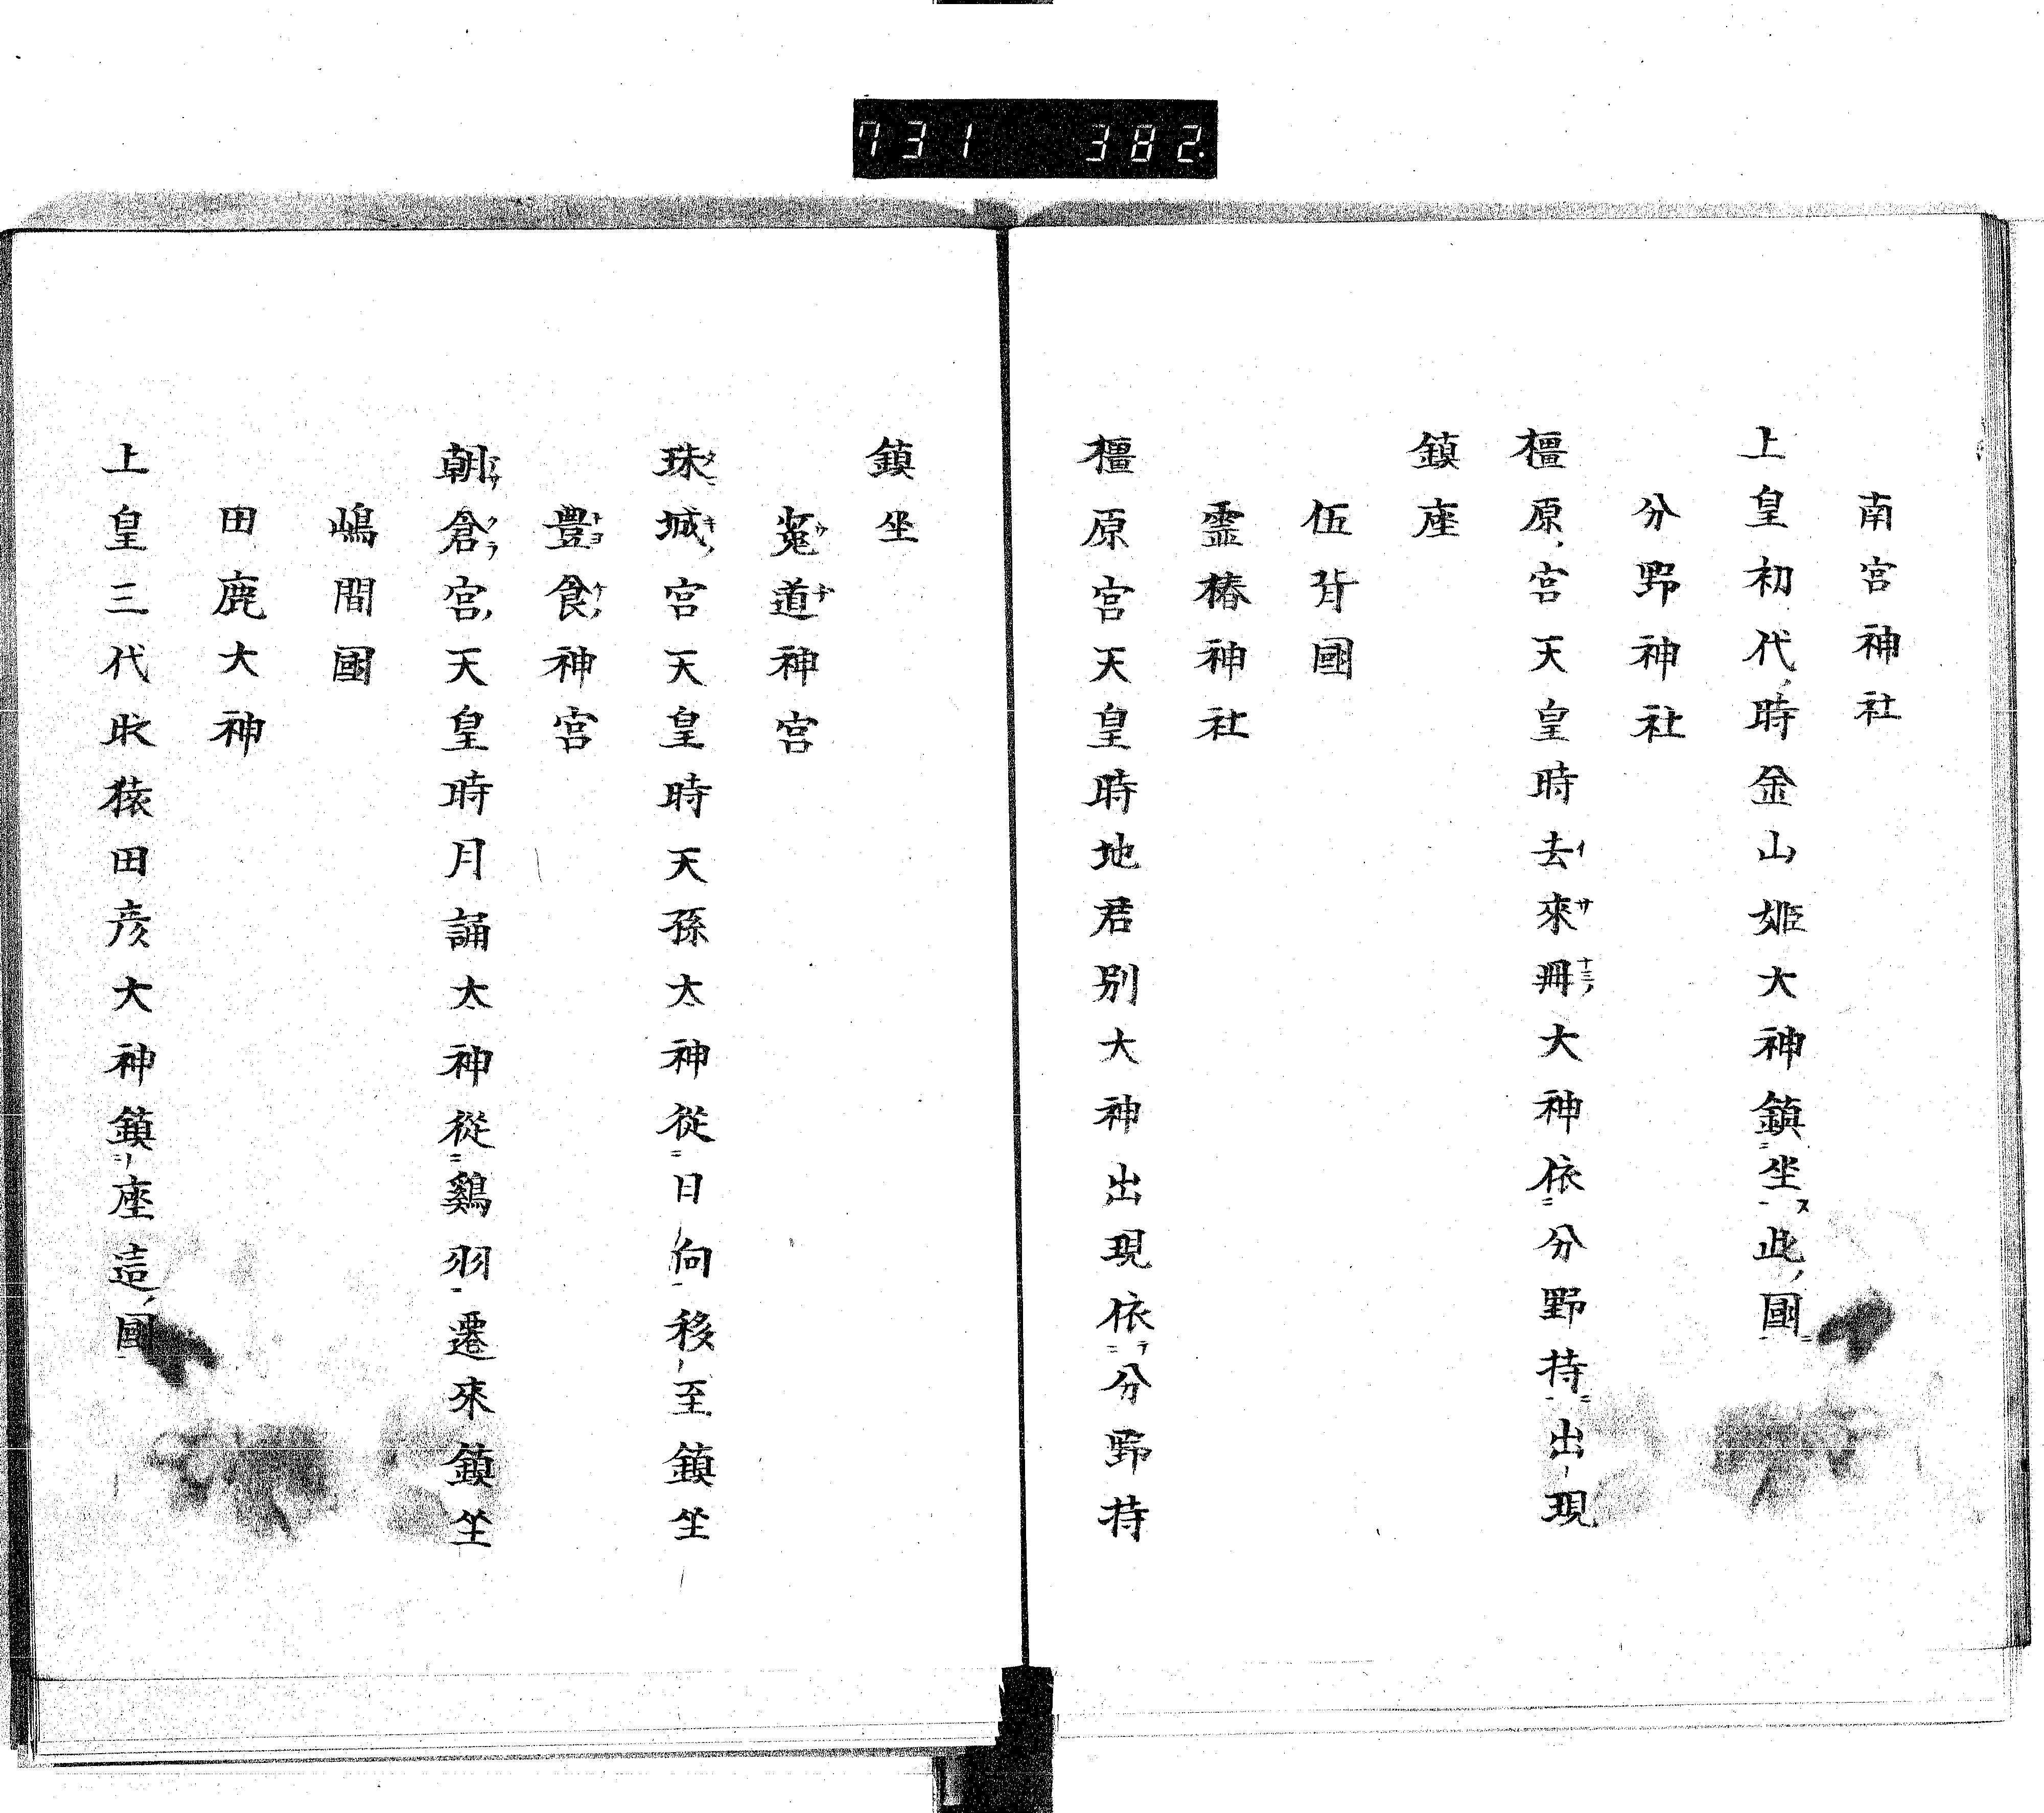 731 382
南宮神社
上皇初代時金山姬大神鎮坐此國
分野神社
橿原宮天皇時去來冊大神依分野持出現
鎮座
伍背國
靈椿神社
橿原宮天皇時地君別大神出現依分野持
鎮坐
菟道神宮
珠城宮天皇時天孫太神從日向移至鎮坐
豐食神宮
朝倉宮天皇時月誦太神從鷄羽遷來鎮坐
嶋間國
田鹿大神
上皇三代時猿田彦大神鎮座這國